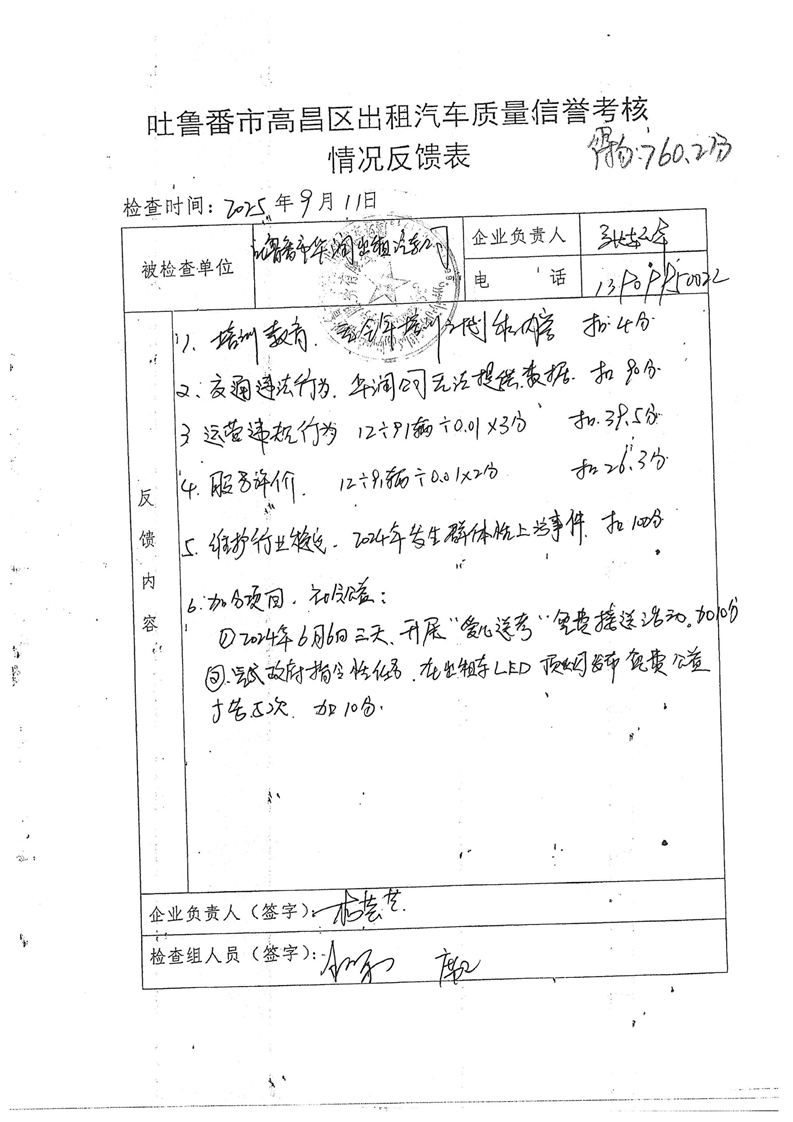 吐鲁番市高昌区出租汽车质量信誉考核
情况反馈表
得分:760.2分
检查时间：2025年9月11日
被检查单位 吐鲁番市华润出租汽车公司
企业负责人
电 话
反馈内容
1、培训教育，无全年培训计划和内容 扣4分
2、交通违法行为，华润公司无法提供数据. 扣90分
3 运营违规行为 12÷91辆÷0.01×3分 扣.39.5分
4. 服务评价. 12÷91辆÷0.01×2分 扣26.3分
5. 维护行业稳定. 2024年发生群体性上访事件. 扣100分
6.加分项目. 社会公益：
①2024年6月6日三天.开展“爱心送考”免费接送活动。加10分
②.完成政府指令性任务.在出租车LED顶灯发布免费公益
广告五次. 加10分.
企业负责人（签字）：
检查组人员（签字）：